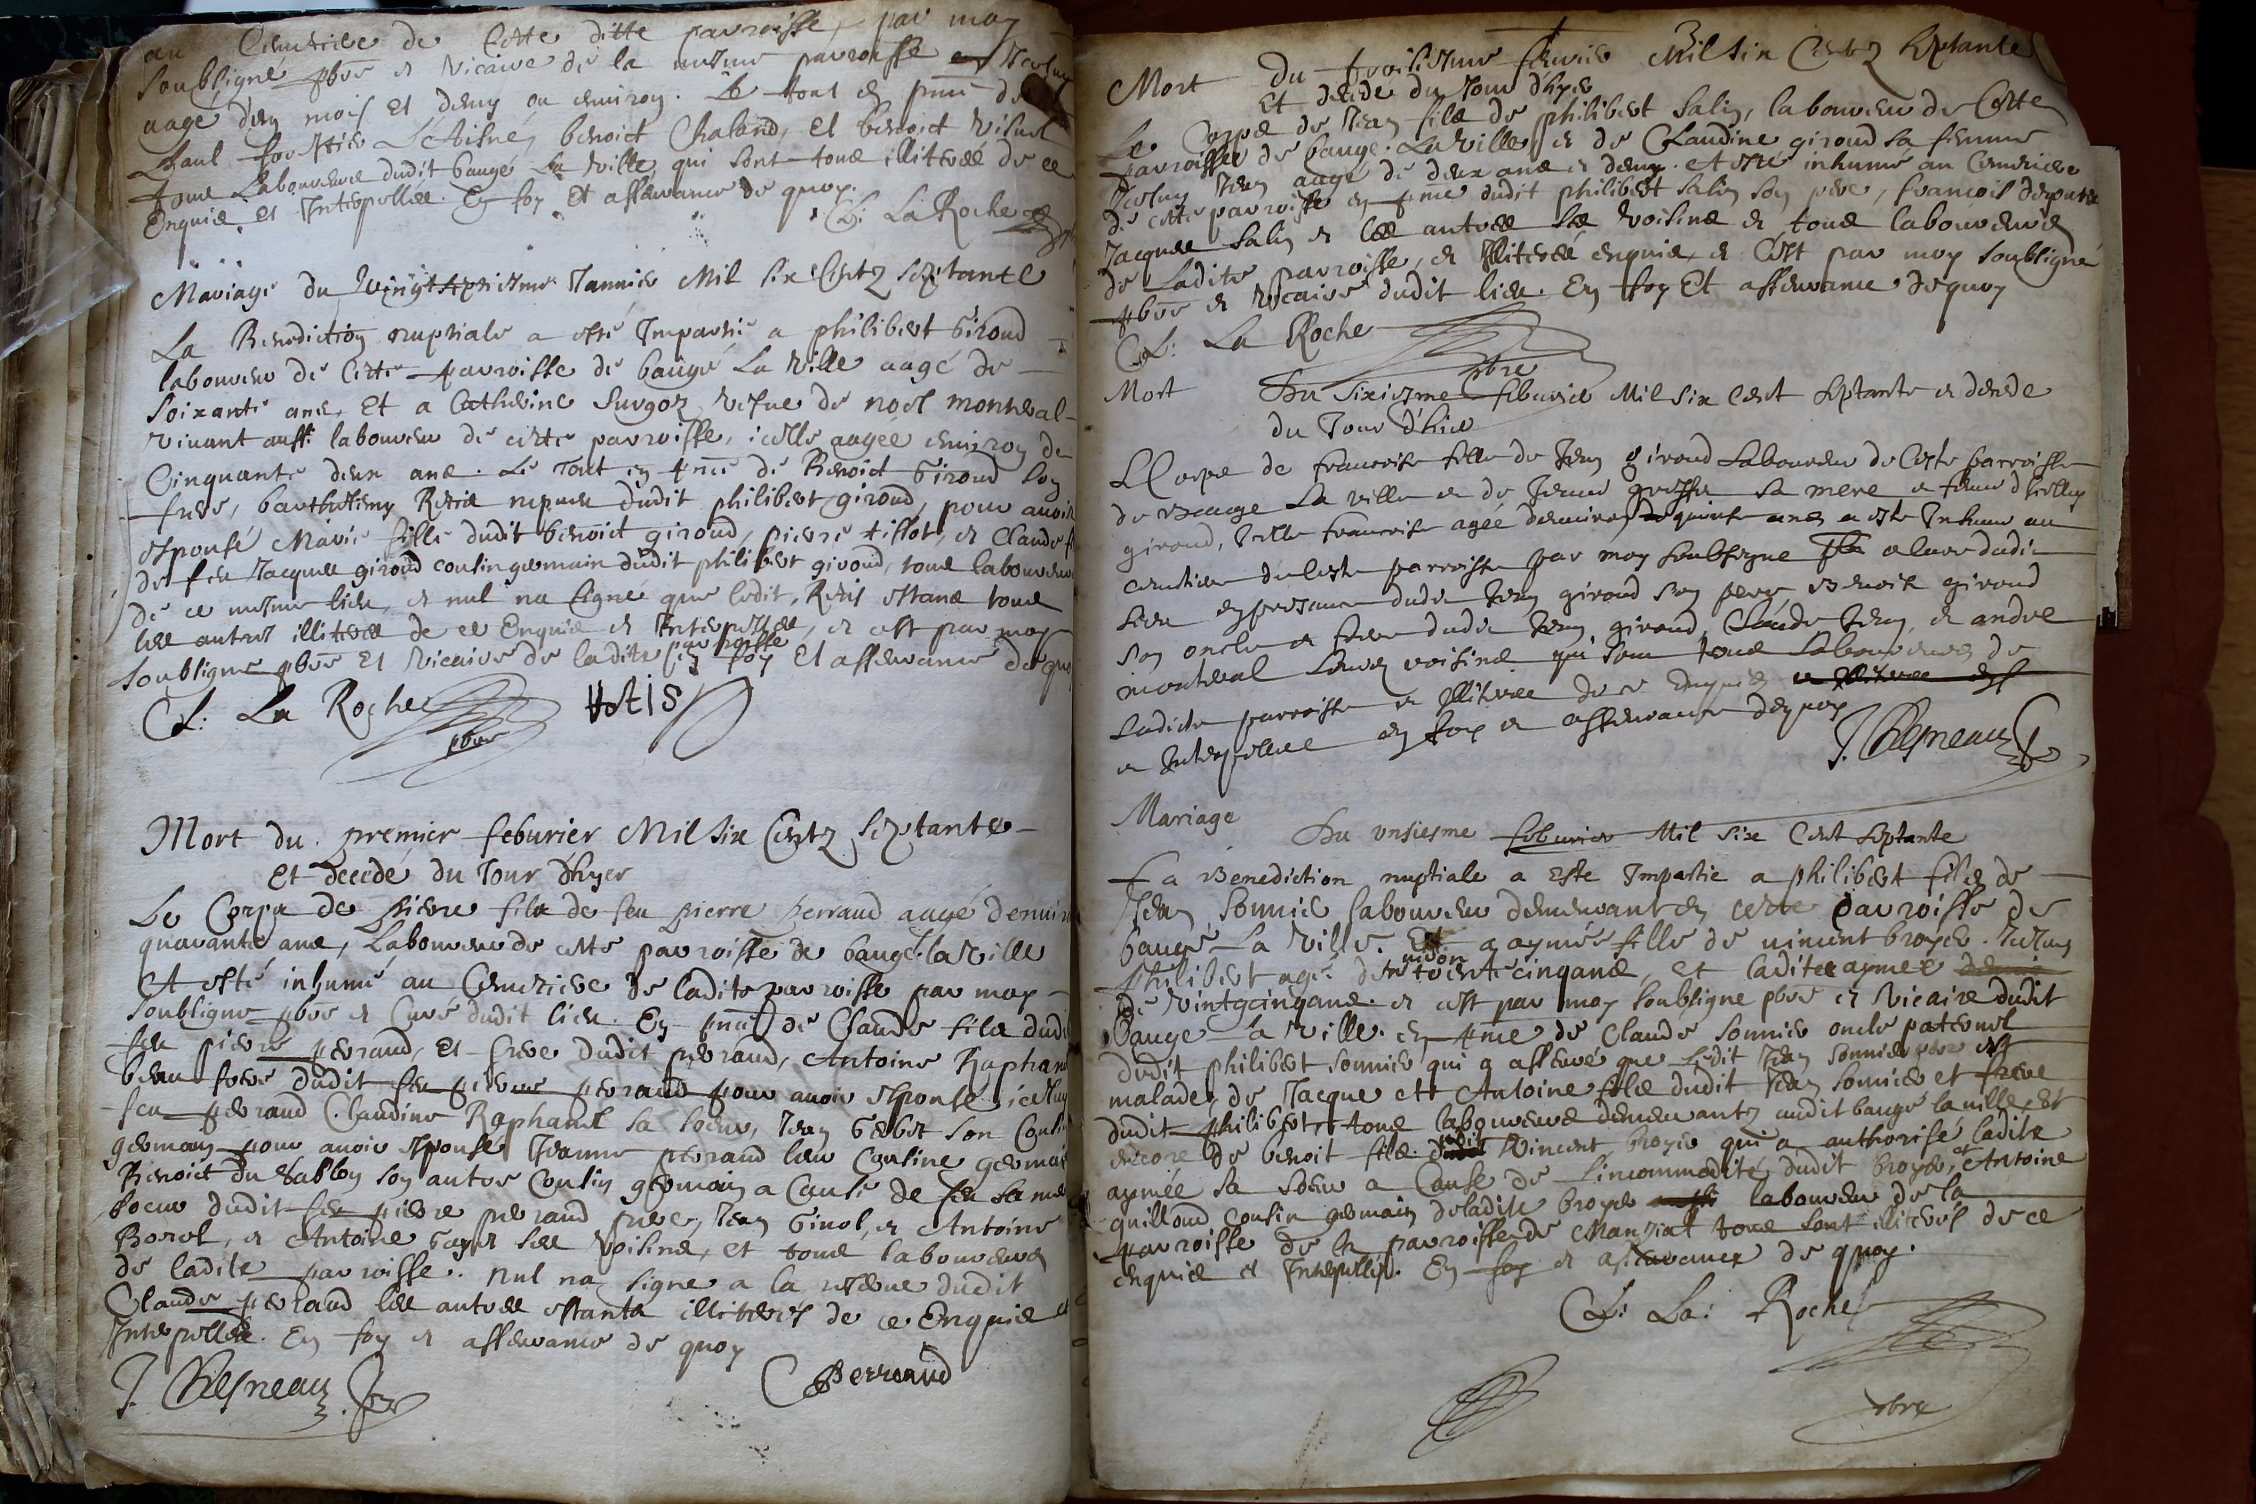 au Cemetiere de Cette ditte parroisse, par moy
soubsigné pbre et vicaire de la mesme parroisse
aagé d'un mois et demy ou environ. Le tout en pnce de
Benoict Chaland, et benoict
tous Laboureurs dudit baugé La ville, qui sont tous illiterés de ce
Enquis et Interpellés. En foy et asseurance de quoy.
Cl: La Roche
Mariage du vingtseptiesme Janvier Mil six Centz septante
La Benediction nuptiale a esté Impartie a philibert Giroud
laboureur de Cette parroisse de baugé La Ville aagé de
soixante ans, Et a Catherine Surgoz vefue de noel monteral
vivant aussi laboureur de cette parroisse, icelle aagée environ de
Cinquante deux ans. Le Tout en pnce de Benoict Giroud son
frere, barthelemy Retis nepveu dudit philibert giroud, pour avoir
espousé Marie fille dudit benoict giroud, pierre tissot, et Claude
de feu Jacques giroud cousin germain dudit philibert giroud, tous laboureurs
de ce mesme lieu, et nul na signé que ledit Retis estans tous
les autres illiterés de ce Enquis et Interpellés, et cest par moy
soubsigné pbre et vicaire de ladite parroisse En foy et asseurance de quoy
Cl: La Roche pbre
Mort du premier feburier Mil six Centz septante
Et decedé du Jour d'hyer
Le Corps de pierre fils de feu pierre perraud aagé denviron
quarante ans, Laboureur de cette parroisse de baugé la ville
A esté inhumé au Cemetiere de ladite parroisse par moy
soubsigné pbre et Curé dudit lieu. En pnce de Claude fils dudit
feu pierre perraud, et frere dudit perraud, Antoine Raphanel
beau frere dudit feu pierre perraud pour avoir espousé icelluy
feu perraud Claudine Raphanel sa soeur, Jean Gerbet son Cousin
germain pour avoir espousé Jeanne perraud leur Cousine germaine
Benoict du Sablon son autre Cousin germain a Cause de feu sa mere
soeur dudit feu pierre perraud pere, Jean Ginol, et Antoine
Borel, et Antoine Gayet ses voisins, et tous laboureurs
de ladite parroisse. Nul na signé a la reserve dudit
Claude perraud les autres estants illiterés de ce Enquis et
Interpellés. En foy et asseurance de quoy
J. Chesneau
CPerraud
3
Mort du troisiesme feurier Mil six Centz septante
Et decedé du Jour d'hyer
Le Corps de Jean fils de philibert Salin, laboureur de Cette
parroisse de baugé La ville et de Claudine giroud sa femme
Icelluy Jean aagé de deux ans et demy. A esté inhumé au Cemetiere
de cette parroisse en pnce dudit philibert Salin son pere, francois
Jacques Salin et les autres ses voisins et tous laboureurs
de Ladite parroisse, et Illiterés enquis, et Cest par moy soubsigné
pbre et vicaire dudit lieu. En foy Et asseurance de quoy
Cl: La Roche pbre
Mort Du sixiesme feburier Mil six Cent septante et decede
du Jour d'hier
Le Corps de francoise fille de Jean giroud Laboureur de Cette parroisse
de Bauge la ville et de Jeanne sa mere et femme d'icelluy
giroud, Icelle francoise agée denviron de quinse ans a este Inhume au
cemetiere de Ceste parroisse par moy soubsigne pbre et cure dudit
lieu en presance dudit Jean giroud son pere Benoist giroud
son oncle et frere dudit Jean giroud, Claude Jean, et andre
monteral leurs voisins qui sont tous laboureurs de
Ladicte parroisse et illiteres de ce enquis
et Interpelles en foy et asseurance dequoy
J. Chesneau
Mariage Du unsiesme feburier Mil six Cent septante
La Benediction nuptiale a este Impartie a philibert fils de
Jean Sonnier laboureur demeurant en cette parroisse de
baugé La Ville. Et a aymée fille de vincent broyer. Icelluy
philibert agé denviron trente cinq ans, et ladite aymée
de vintgcinq ans. et cest par moy soubsigné pbre et vicaire dudit
bauge La ville. en pnce de Claude Sonnier oncle paternel
dudit philibert sonnier qui a asseuré que Ledit Jean sonnier pere est
malade, de Jacque et Antoine fils dudit Jean sonnier et frere
dudit philibert, tous laboureurs demeurantz audit baugé la ville, et
encore de benoit fils dudit Vincent broyer qui a authorisé ladite
aymée sa soeur a Cause de Lincommodité dudit broyer, et Antoine
guilloud cousin germain de ladite broyer laboureur de la
parroisse de la parroisse de Manziat tous sont illiterés de ce
enquis et Interpellés. En foy et asseurance de quoy.
Cl: La: Roche
pbre